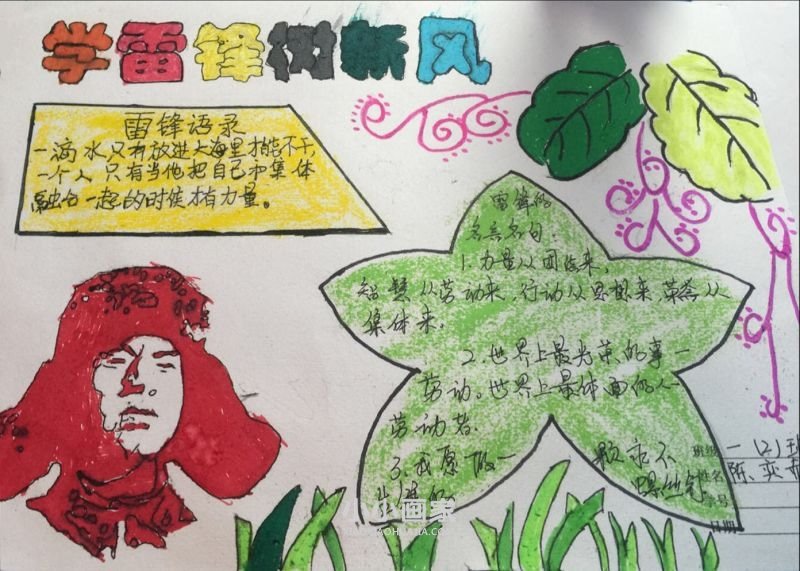 学雷锋树新风
雷锋语录
一滴水只有放进大海里才能不干,
一个人只有当他把自己和集体
融合一起的时候才有力量。
雷锋的
名言名句:
1.力量从团结来,
智慧从劳动来,行动从思想来,荣誉从
集体来。
2.世界上最光荣的事一
劳动。世界上最体面的人一
劳动者.
3.我愿做一颗永不
生锈的螺丝钉
班级 一(2)班
姓名 陈奕
学号
日期
小小画家